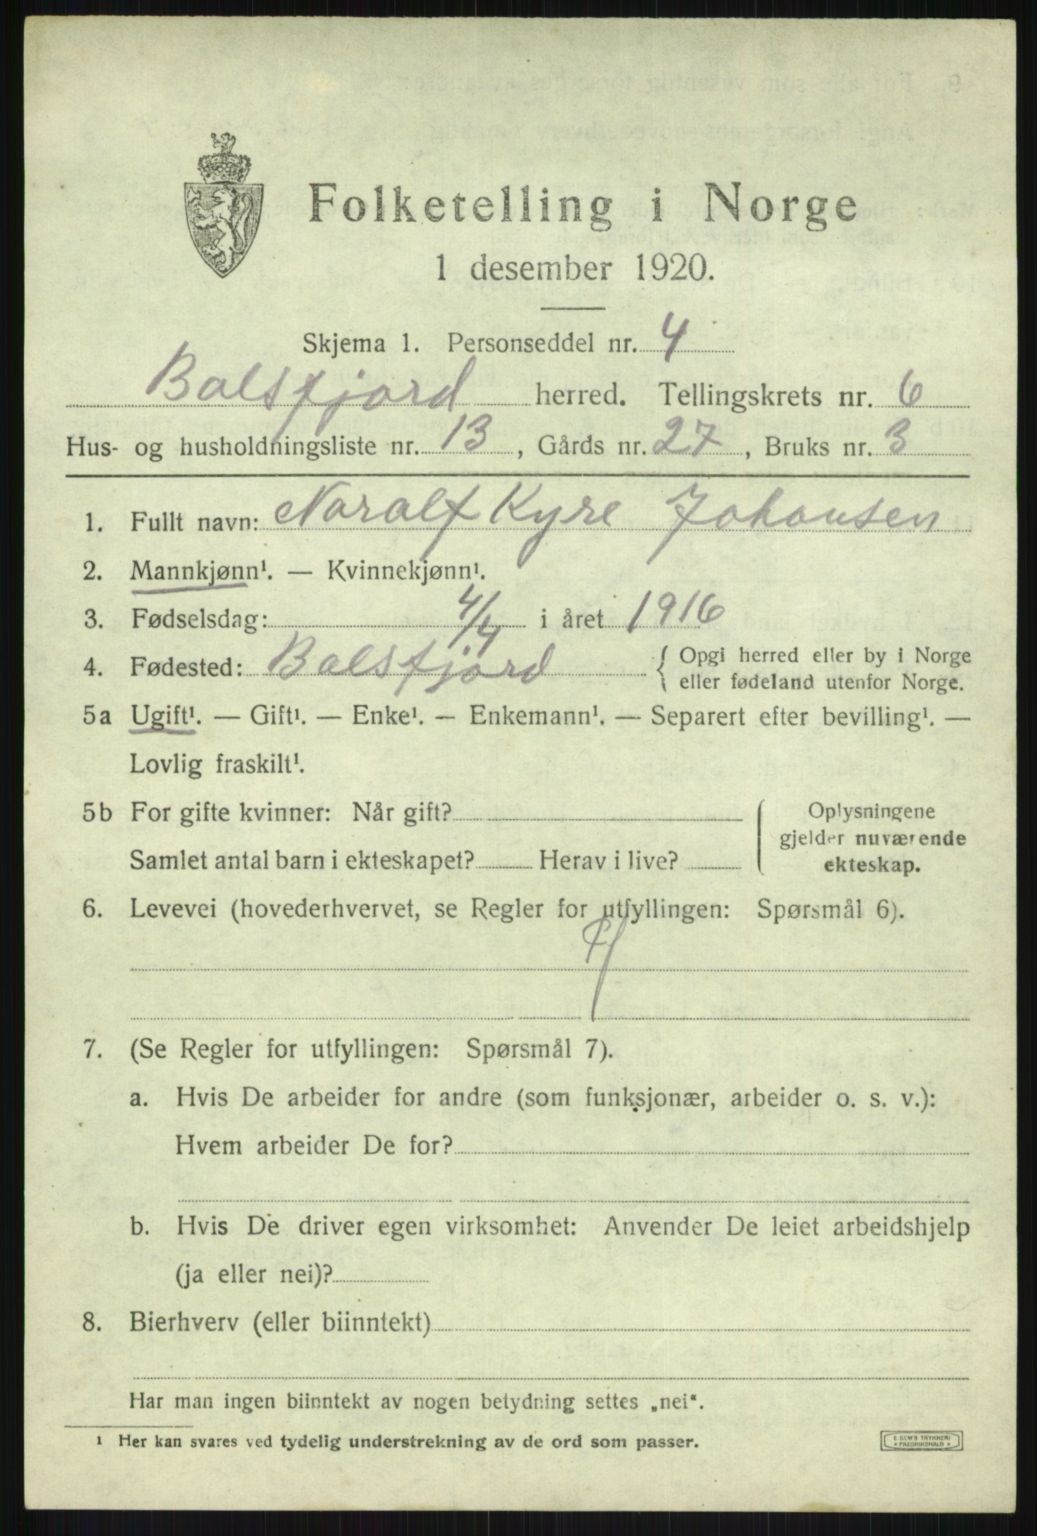 Folketelling i Norge
1 desember 1920.
Skjema 1. Personseddel nr. 4
Balsfjord herred. Tellingskrets nr. 6
Hus- og husholdningsliste nr. 13, Gårds nr. 27, Bruks nr. 3
1. Fullt navn: Noralf Kyre Johansen
2. Mannkjønn¹. — Kvinnekjønn¹.
3. Fødselsdag: 4/4 i året 1916
4. Fødested: Balsfjord { Opgi herred eller by i Norge
eller fødeland utenfor Norge.
5a Ugift¹. — Gift¹. — Enke¹. — Enkemann¹. — Separert efter bevilling¹. —
Lovlig fraskilt¹.
5b For gifte kvinner: Når gift?
Samlet antal barn i ekteskapet? Herav i live?
{ Oplysningene
gjelder nuværende
ekteskap.
6. Levevei (hovederhvervet, se Regler for utfyllingen: Spørsmål 6).
7. (Se Regler for utfyllingen: Spørsmål 7).
a. Hvis De arbeider for andre (som funksjonær, arbeider o. s. v.):
Hvem arbeider De for?
b. Hvis De driver egen virksomhet: Anvender De leiet arbeidshjelp
(ja eller nei)?
8. Bierhverv (eller biinntekt)
Har man ingen biinntekt av nogen betydning settes „nei“.
¹ Her kan svares ved tydelig understrekning av de ord som passer.
E. SEM'S TRYKKERI
FREDRIKSHALD